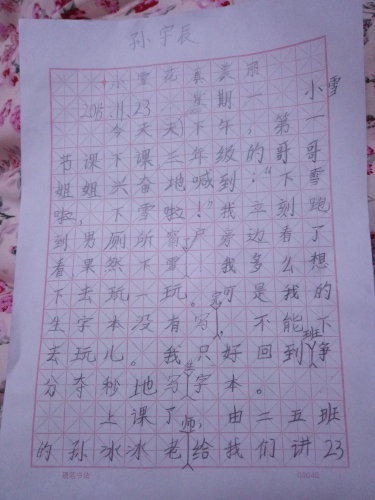 孙宇辰
小雪花真美丽
2015.11.23 星期一 小雪
今天天)下午,第一
节课下课三年级的哥哥
姐姐兴奋地喊到:“下雪
啦,下雪啦!”我立刻跑
到男厕所窗户旁边看了
看果然下雪!我多么想
下去玩一玩。可是我的
生字本没有写完,不能下
去玩儿。我只好回到班争
分夺秒地写生字本。
上课了,由二五班
的孙冰冰老师给我们讲23